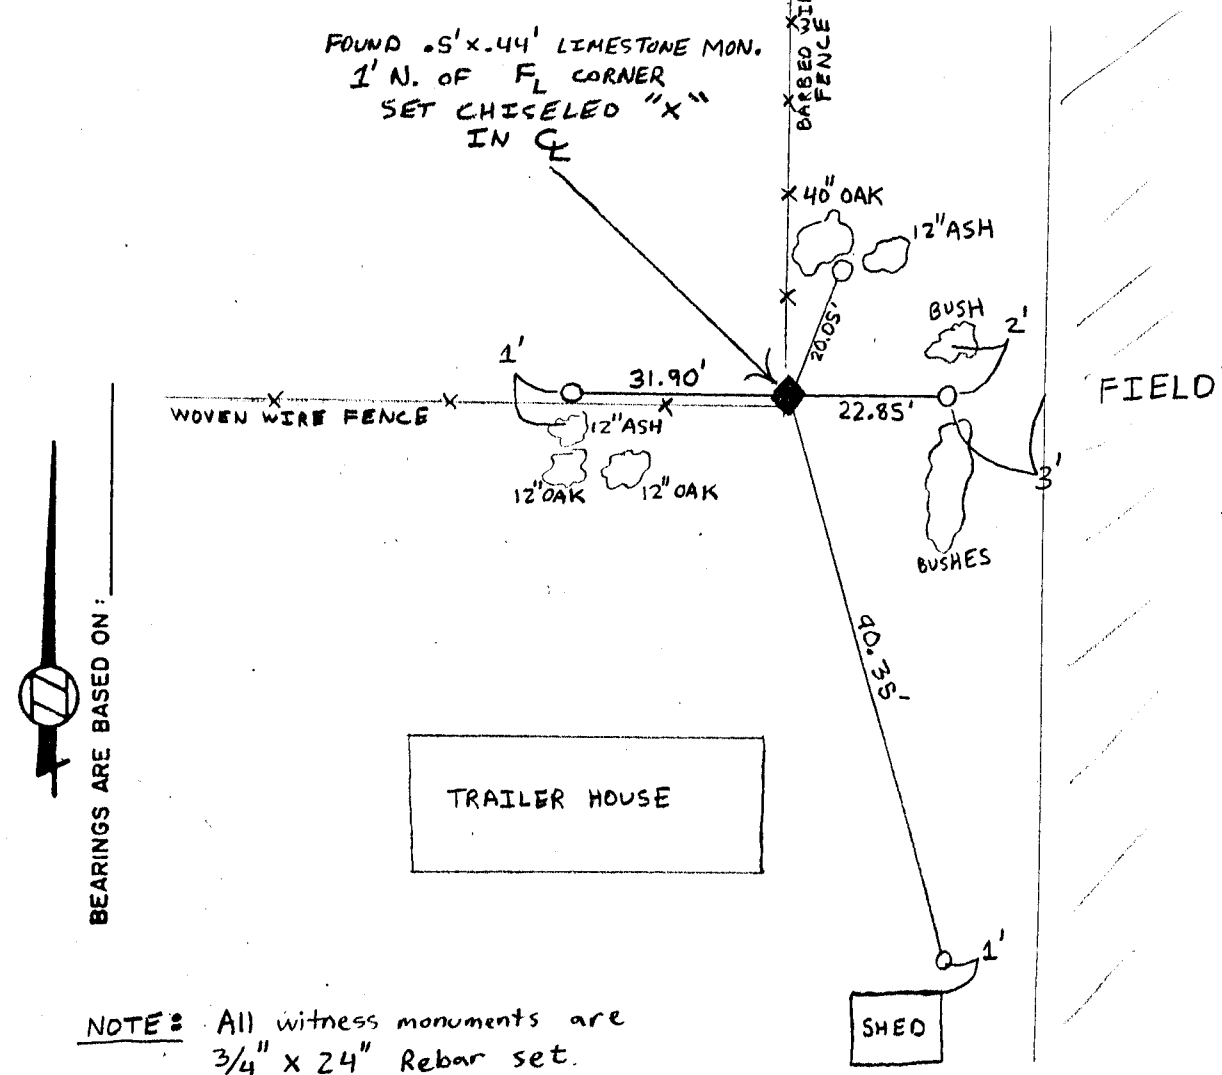 FOUND .5' X .44' LIMESTONE MON.
1' N. OF FL CORNER
SET CHISELED "X"
IN CL
BARBED
FENCE
40" OAK
12" ASH
20.05'
BUSH
2'
1'
31.90'
22.85'
FIELD
WOVEN WIRE FENCE
12" ASH
12" OAK
12" OAK
3'
BUSHES
90.35'
BEARINGS ARE BASED ON:
TRAILER HOUSE
1'
SHED
NOTE: All witness monuments are
3/4" X 24" Rebar set.